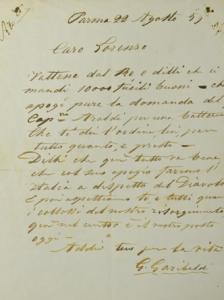 Parma 22 Agosto 59
Caro Lorenzo
Vattene dal Re e dilli che ci
mandi 10000 fucili buoni - che
apogi pure la domanda del
Capno Araldi per una batteria
che te dia l'ordine lui, per
tutto quanto, e presto -
Dilli che qui tutto va bene
che col suo apogio faremo l'
Italia a dispetto del Diavolo
E poi aspettiamo te e tutti quei
colli del nostro risorgimento
qui nel centro è il nostro posto
oggi
Addio tuo per la vita
G. Garibaldi